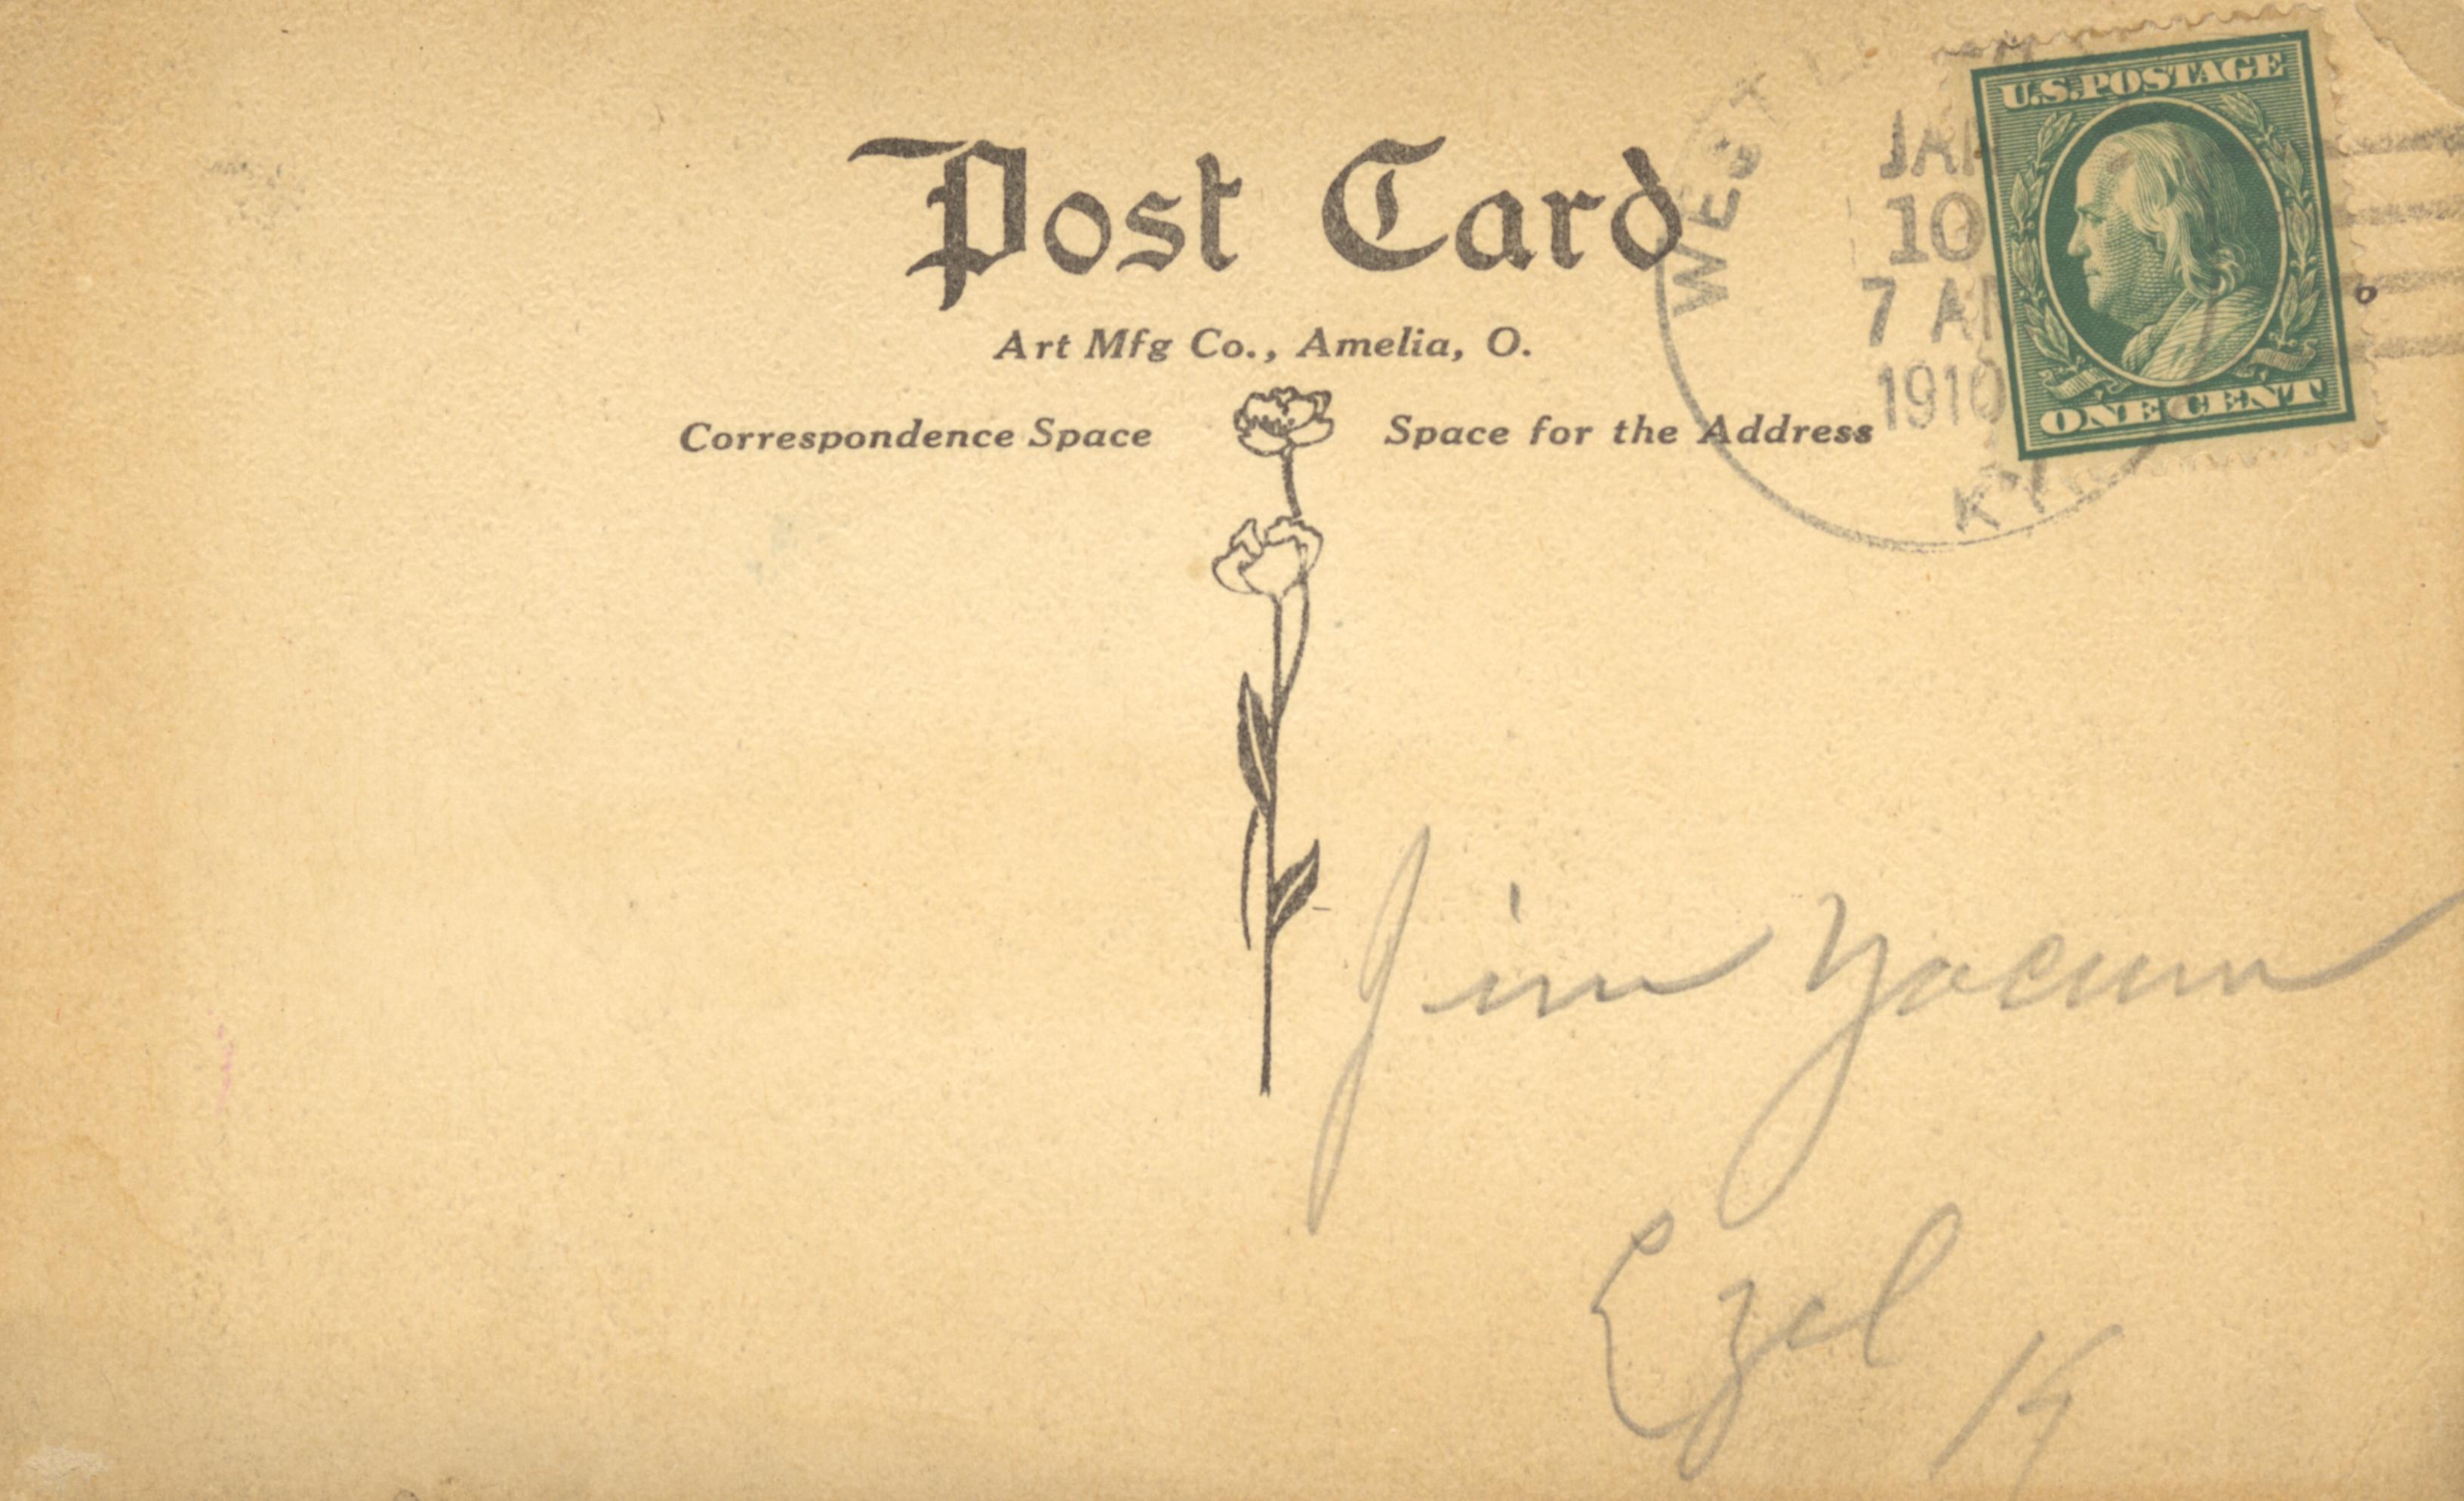 Post Card
Art Mfg Co., Amelia, O.
Correspondence Space
Space for the Address
WEST
JAN
10
7 AM
1910
KY.
U.S. POSTAGE
ONE CENT
Jim Yocum
Ezel Ky